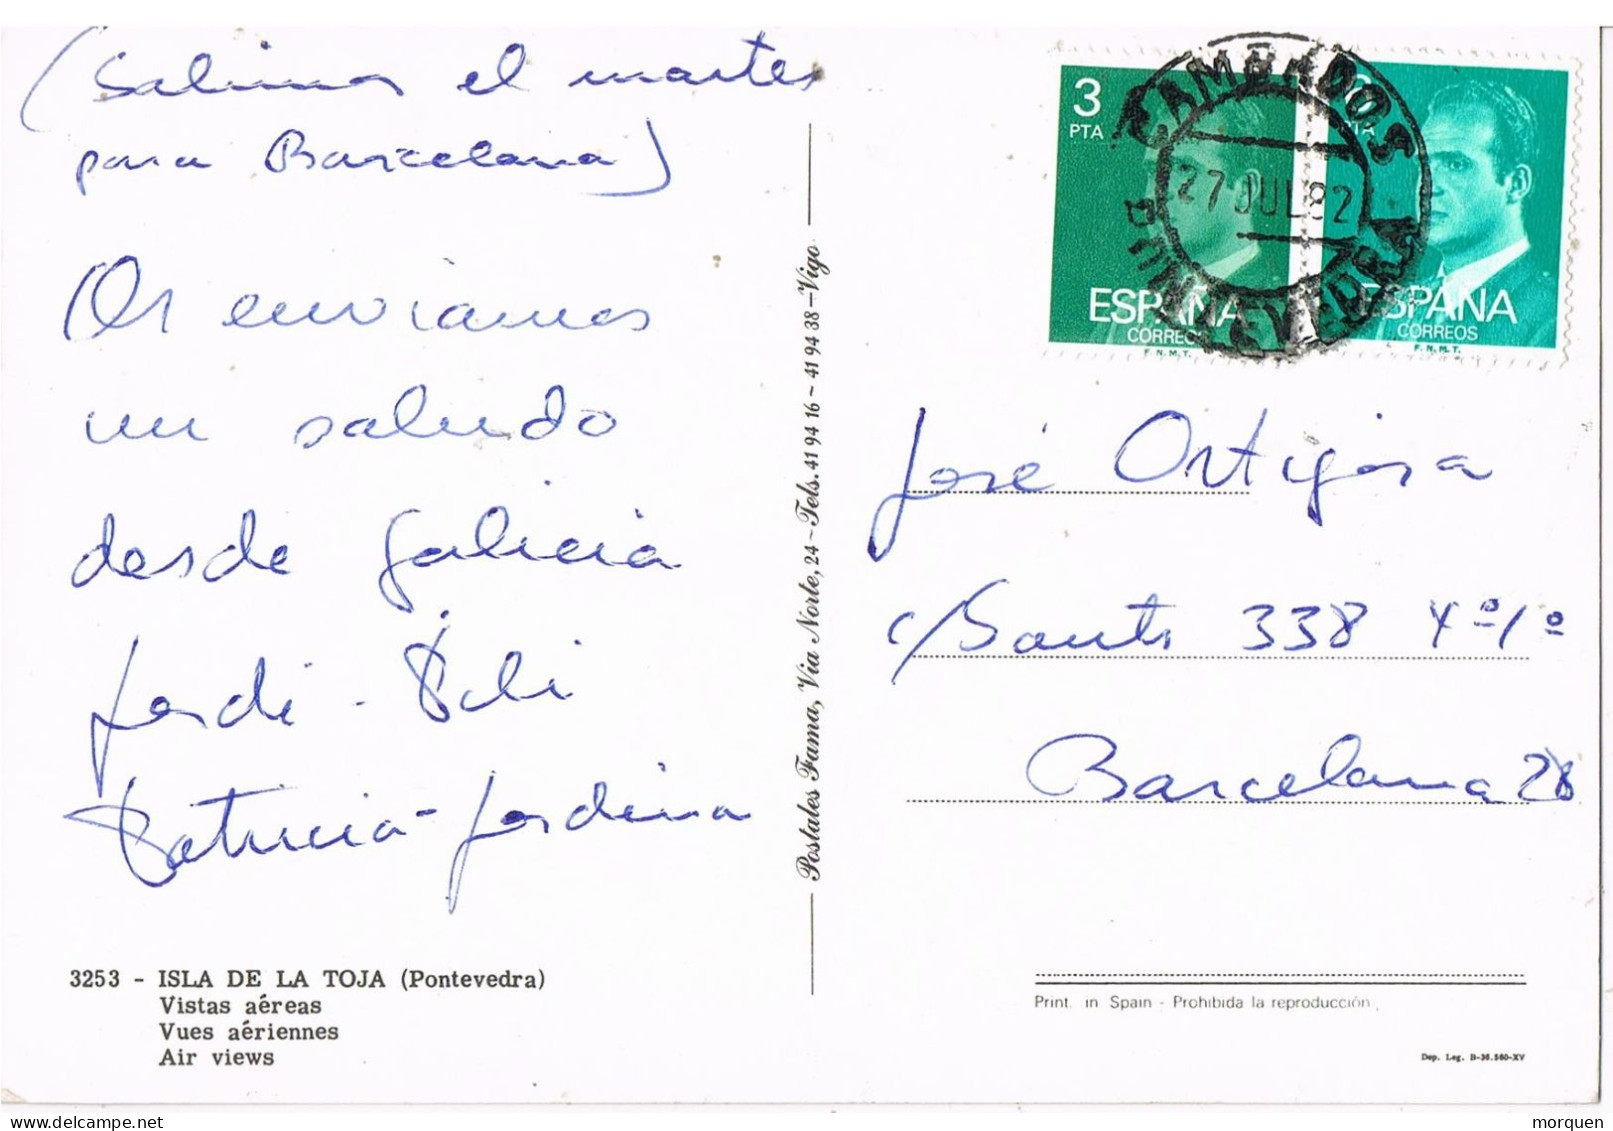 (Salimos el martes
para Barcelona)
Os enviamos
un saludo
desde Galicia
Jordi - Pili
Patricia - Jordina
3253 - ISLA DE LA TOJA (Pontevedra)
Vistas aéreas
Vues aériennes
Air views
Postales Fama, Via Norte, 24 - Tels. 41 94 16 - 41 94 38 - Vigo
3
PTA
ESPAÑA
CORREOS
F.N.M.T.
PTA
ESPAÑA
CORREOS
F.N.M.T.
CAMBADOS
27 JUL 82
PONTEVEDRA
José Ortigosa
c/Sants 338 4º 1º
Barcelona 28
Print. in Spain - Prohibida la reproducción
Dep. Leg. B-36.560-XV
morquen